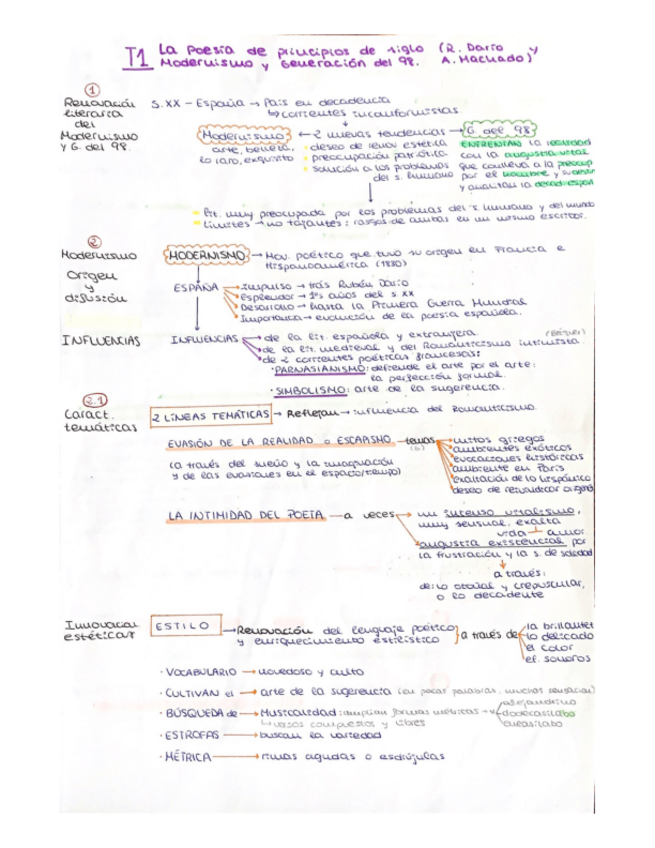 T1 La Poesía de principios de siglo (R. Darío y
Modernismo y Generación del 98. A. Machado)
① Renovación
literaria
del
Modernismo
y G. del 98.
S. XX - España → País en decadencia
↳ corrientes inconformistas
Modernismo ← 2 nuevas tendencias → G. del 98
arte, belleza,
lo raro, exquisito
• deseo de renov estética
• preocupación patriótica
• solución a los problemas
del s. humano
ENFRENTAN la realidad
con la angustia vital
que conlleva a la preocup
por el hombre y su
y analizan la decad. españ
• lit. muy preocupada por los problemas del s. humano y del mundo
• límites → no tajantes: rasgos de ambas en un mismo escritor.
② Modernismo
Origen
y
difusión
MODERNISMO → Mov. poético que tuvo su origen en Francia e
Hispanoamérica (1880)
ESPAÑA → Impulso → trás Rubén Darío
Esplendor → 1os años del s XX
Desarrollo → hasta la Primera Guerra Mundial
Importancia → evolución de la poesía española.
INFLUENCIAS
INFLUENCIAS → de la lit. española y extranjera
(Bécquer)
de la lit. medieval y del Romanticismo intimista.
de 2 corrientes poéticas francesas:
· PARNASIANISMO: defiende el arte por el arte:
la perfección formal.
· SIMBOLISMO: arte de la sugerencia.
2.1 Caract.
temáticas
2 LÍNEAS TEMÁTICAS → Reflejan → influencia del Romanticismo
EVASIÓN DE LA REALIDAD o ESCAPISMO - temas
(6)
(a través del sueño y la imaginación
y de las evasiones en el espacio/tiempo)
mitos griegos
ambientes exóticos
evocaciones históricas
ambiente en París
exaltación de lo hispánico
deseo de reivindicar
LA INTIMIDAD DEL POETA - a veces → un intenso vitalismo,
muy sensual, exalta
vida amor
angustia existencial por
la frustración y la s. de soledad
a través:
de lo otoñal y crepuscular,
o lo decadente
Innovacion
estéticas
ESTILO → Renovación del lenguaje poético
y enriquecimiento estilístico
a través de
la brillantez
lo delicado
el color
ef. sonoros
· VOCABULARIO → novedoso y culto
· CULTIVAN el → arte de la sugerencia (en pocas palabras, muchas sensación)
· BÚSQUEDA de → Musicalidad: amplían formas métricas →
alejandrino
dodecasílabo
eneasílabo
↳ versos compuestos y libres
· ESTROFAS → buscan la variedad
· MÉTRICA → rimas agudas o esdrújulas